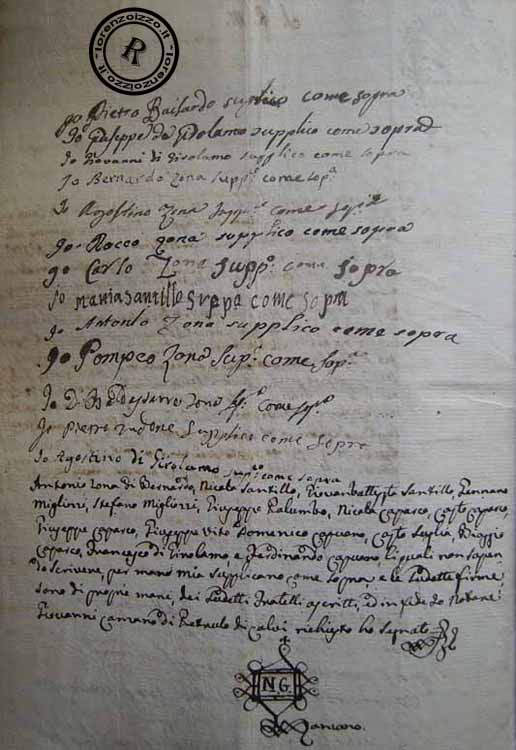 -lorenzoizzo.it- -lorenzoizzo.it-
R
Io Pietro supplico come sopra
Io Giuseppe de Girolamo supplico come sopra
Io Giovanni di Girolamo supplico come sopra
Io Bernardo Zona supp.co come sop.a
Io Agostino Zona supp.co come sop.a
Io Rocco Zona supplico come sopra
Io Carlo Zona supp.o come sopra
Io suppa come sopra
Io Antonio Zona supplico come sopra
Io Pompeo Zona sup.o come sop.a
Io D. Zona come
Io Pietro supplico come sopra
Io Agostino di Girolamo sup.co come sopra
Antonio Zona di Bernardo, Nicola Santillo, Giovanbattista Santillo, Gennaro
Miglioni, Stefano Miglioni, Giuseppe Palumbo, Nicola Caparco,
Giuseppe Caparco, Giuseppe Vito, Domenico Capuono,
Caparco, Francesco di Girolamo, e Ferdinando Capuono, li quali non sapen
do scrivere, per mano mia supplicano come sopra, e le sudette firme
sono di proprie mane, dei sudetti Fratelli ed in fede Io Notare
Giovanni di di Calvi richiesto ho segnato
N.G.